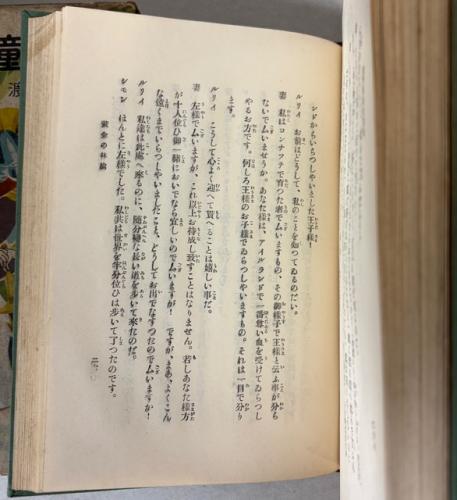 ンドからいらつしやいました王子様！
ルリイ　お前はどうして、私のことを知つてゐるのだい。
妻　私はコンナフテで育つた者でムいますもの、その御様子で王様と云ふ事が分ら
ないでムいませうか。あなた様は、アイルランドで一番尊い血を受けてゐらつし
やるお方です。何しろ王様のお子様でゐらつしやいますもの。それは一目で分り
ます。
ルリイ　こうして心よく迎へて貰へることは嬉しい事だ。
妻　左様でムいますが、これ以上お待成し致すことはなりません。若しあなた様方
が十人位ひ御一緒においでなら宜しいのでムいますが！　ですが、まあ、よくこん
な遠くまでいらつしやいましたこと、どうしてお出でなすつたのでムいますか！
ルリイ　私達は此處へ來るのに、随分長い道を歩いて来たのだ。
シモン　ほんとに左様でした。私共は世界を半分位ひは歩いて了つたのです。
黄金の林檎
童
渡